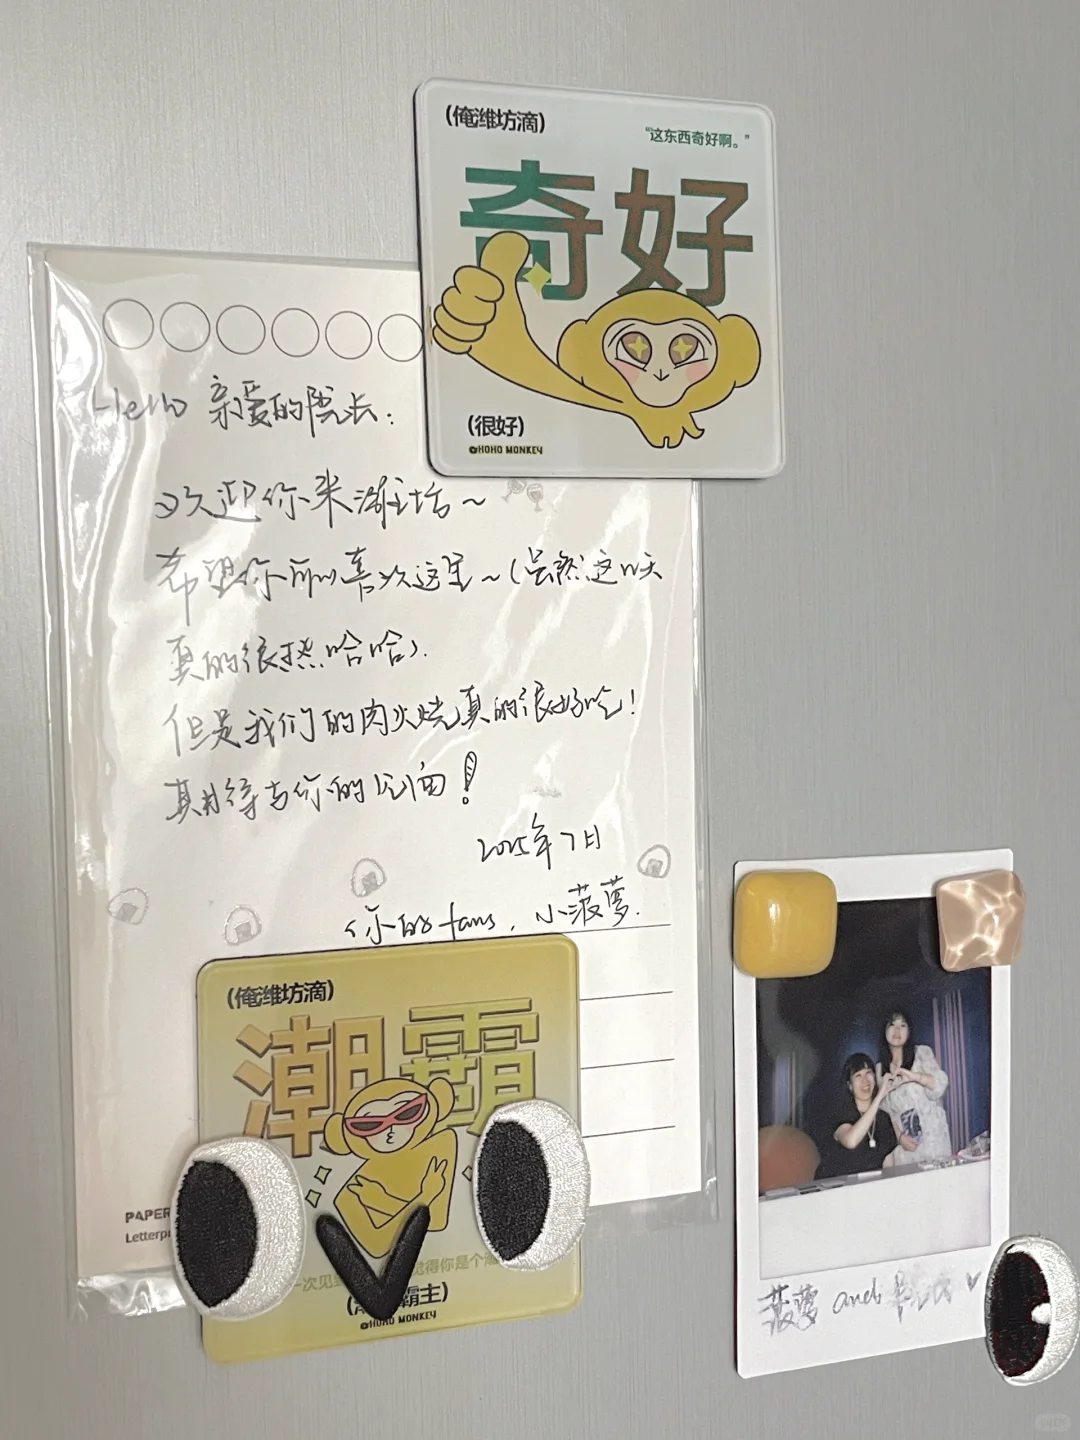 (俺潍坊滴)
“这东西奇好啊。”
奇好
(很好)
@HOHO MONKEY
Hello 亲爱的院长:
欢迎你来潍坊~
希望你可以喜欢这里~(虽然这几天
真的很热哈哈).
但是我们的肉火烧真的很好吃!
期待与你的见面!
2025年7月
你的fans, 小菠萝.
(俺潍坊滴)
潮霸
一次见
觉得你是个
霸主)
@HOHO MONKEY
PAPER
Letterpr
菠萝 and